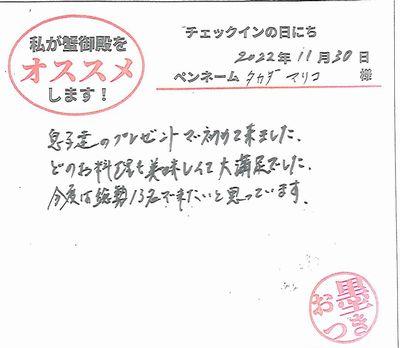 私が蟹御殿を
オススメ
します！
チェックインの日にち
2022年11月30日
ペンネーム タカダ マリコ 様
息子達のプレゼントで初めて来ました。
どのお料理も美味しくて大満足でした。
今度は総勢13名で来たいと思っています。
お墨つき